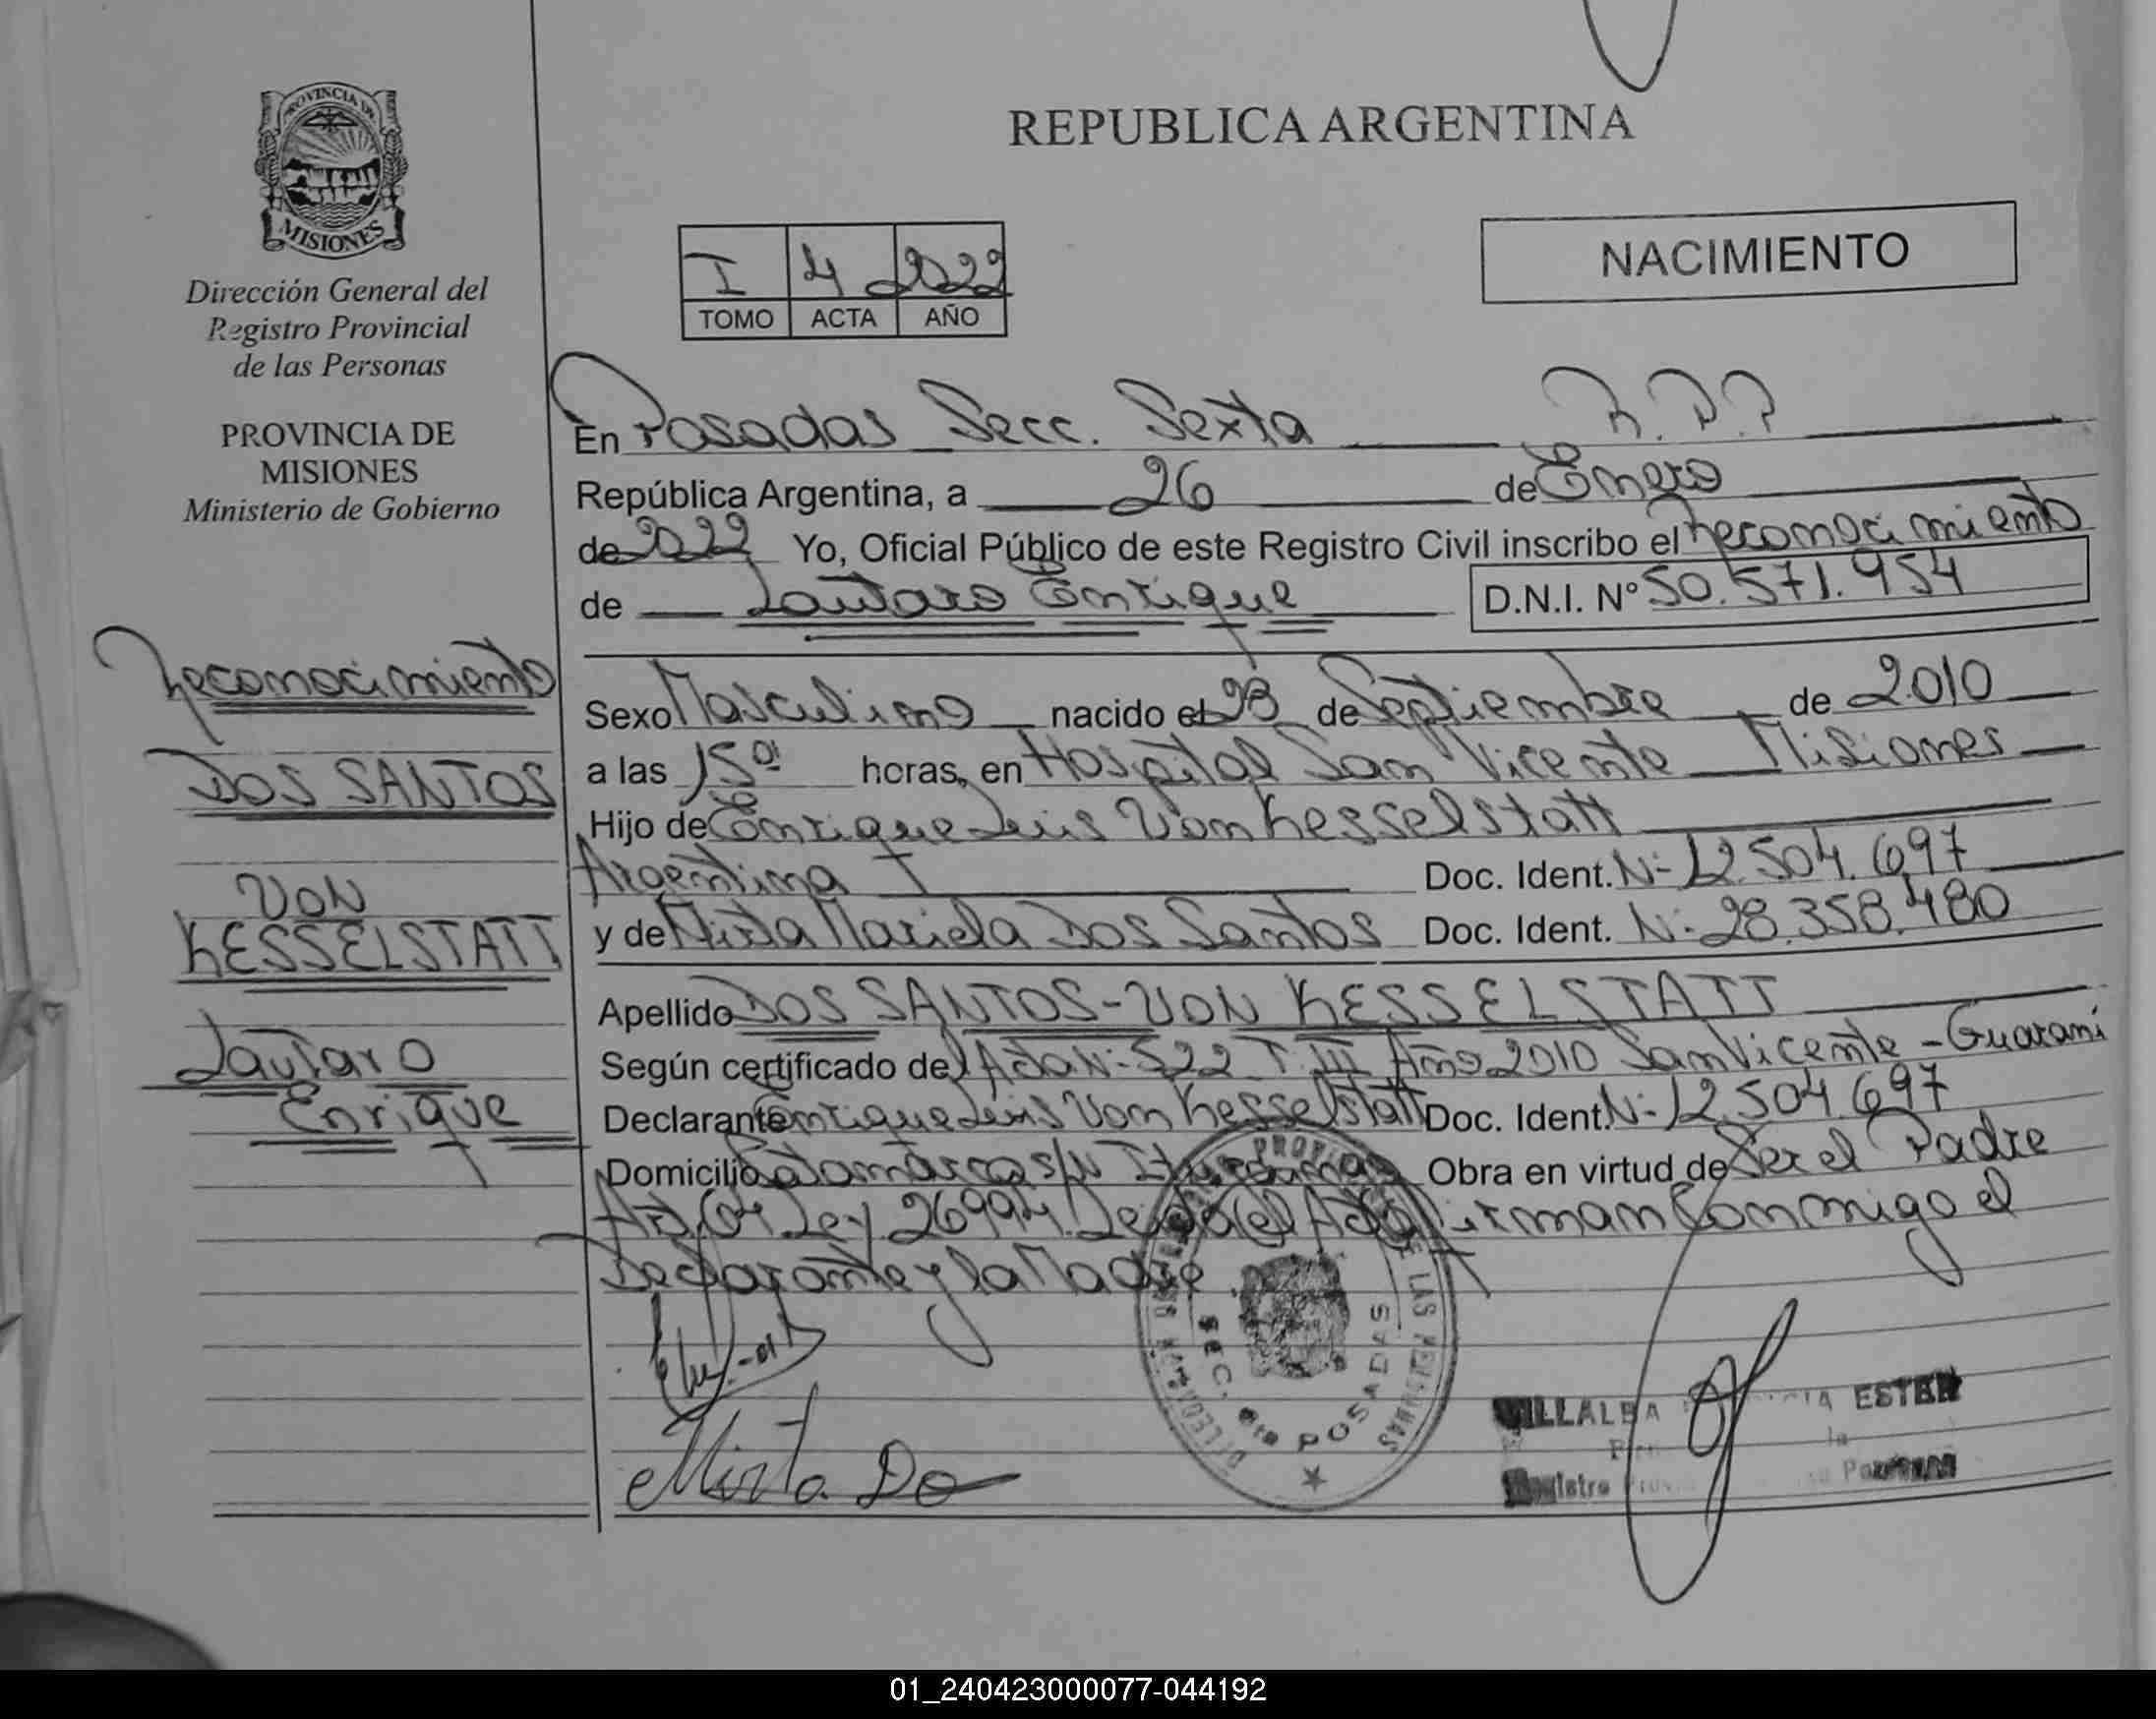 PROVINCIA DE
MISIONES
Dirección General del
Registro Provincial
de las Personas
PROVINCIA DE
MISIONES
Ministerio de Gobierno
Reconocimiento
DOS SANTOS
VON
KESSELSTATT
Lautaro
Enrique
REPUBLICA ARGENTINA
NACIMIENTO
I 4 2022
TOMO ACTA AÑO
En Posadas Secc. Sexta R.P.P
República Argentina, a 26 de Enero
de 2022 Yo, Oficial Público de este Registro Civil inscribo el Reconocimiento
de Lautaro Enrique D.N.I. Nº 50.571.954
Sexo Masculino nacido el 23 de Septiembre de 2010
a las 15 horas, en Hospital San Vicente Misiones
Hijo de Enrique Luis Von Kesselstatt
Argentina Doc. Ident. Nº 12.504.697
y de Mirta Mariela Dos Santos Doc. Ident. Nº 28.358.480
Apellido DOS SANTOS-VON KESSELSTATT
Según certificado del Acta Nº 522 T. III Año 2010 San Vicente - Guaraní
Declarante Enrique Luis Von Kesselstatt Doc. Ident. Nº 12.504.697
Domicilio Catamarca s/N Obra en virtud de Ser el Padre
Art. 64 Ley 26994. Leida el Acta Firman Conmigo el
Declarante y la Madre
Mirta Do
SEC. 6ta POSADAS
DE LAS PERSONAS
VILLALBA ESTER
Registro
01_240423000077-044192